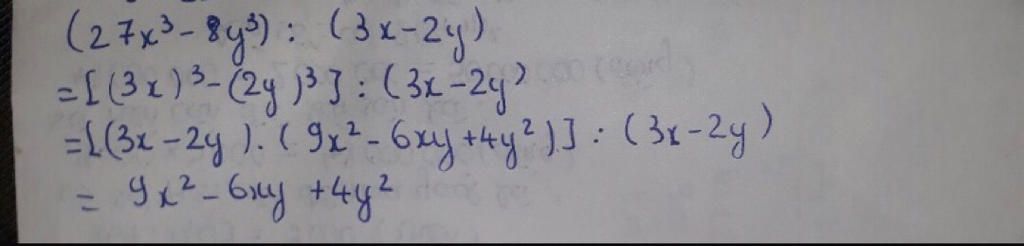 (27x³ - 8y³) : (3x - 2y)
= [(3x)³ - (2y)³] : (3x - 2y)
= [(3x - 2y) . (9x² - 6xy + 4y²)] : (3x - 2y)
= 9x² - 6xy + 4y²